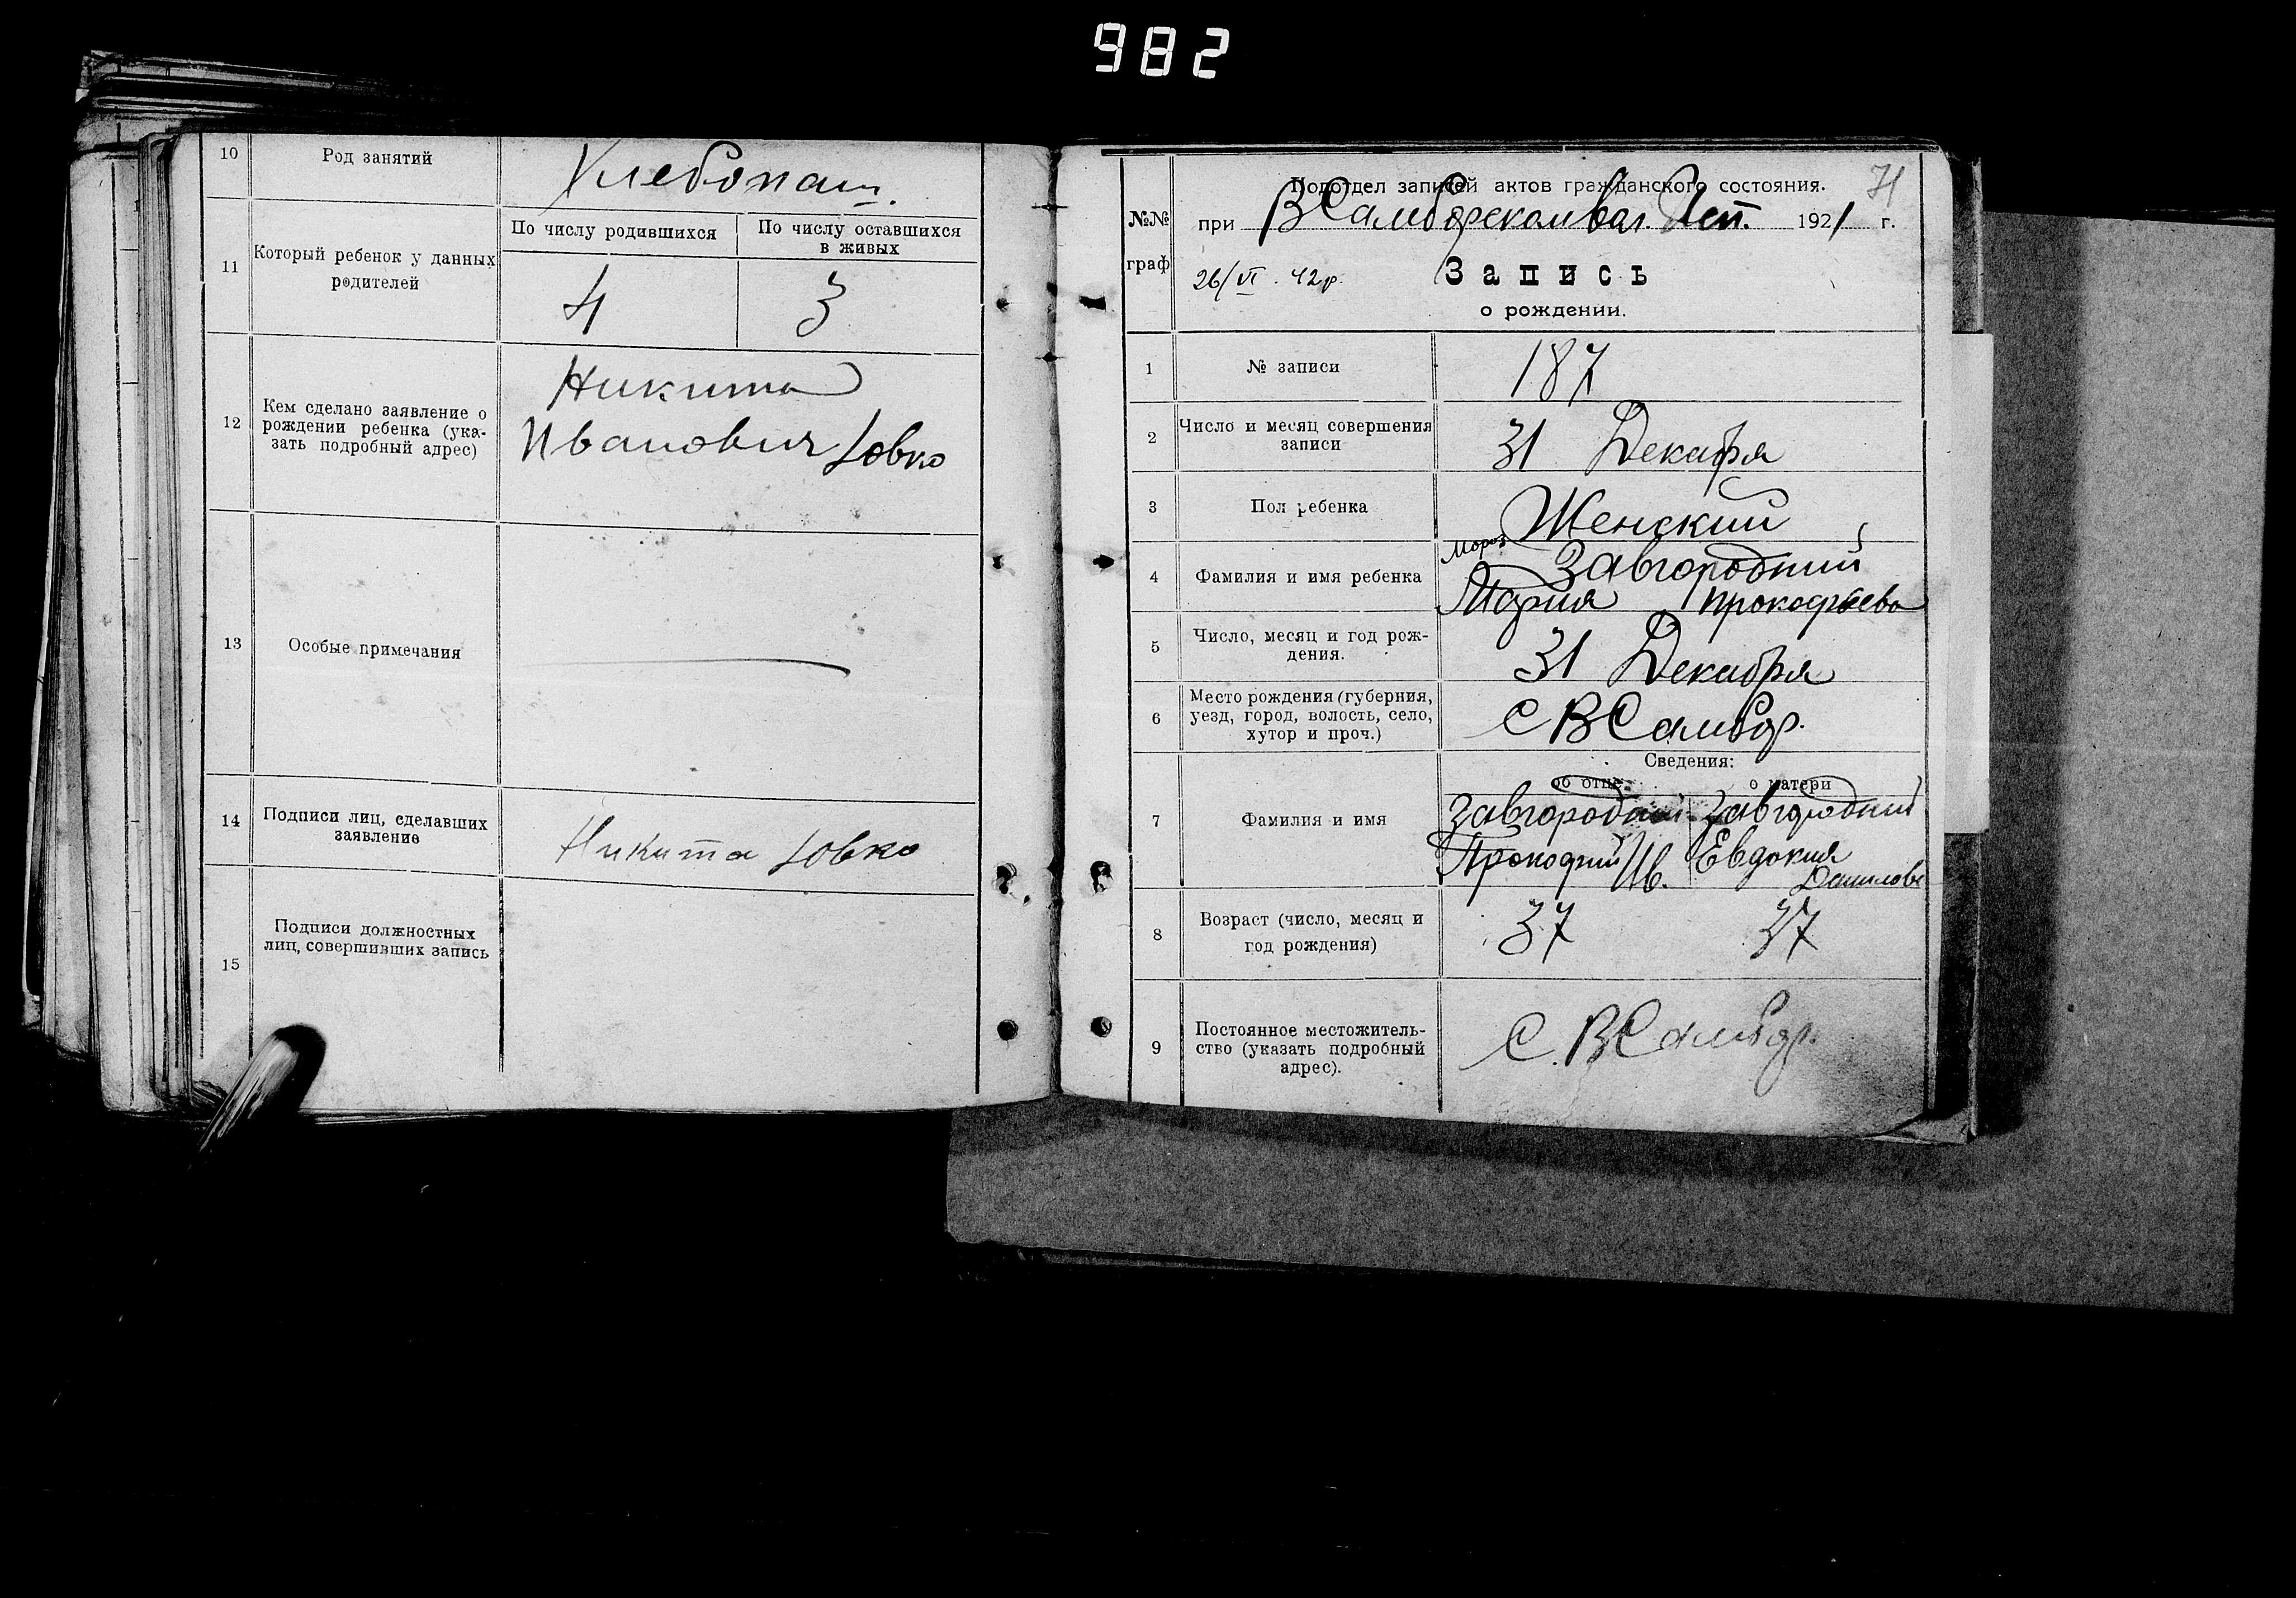 982
10
Род занятий
Хлебопаш.
11
Который ребенок у данных
родителей
По числу родившихся
По числу оставшихся
в живых
4
3
12
Кем сделано заявление о
рождении ребенка (ука-
зать подробный адрес)
Никита
Иванович Ювко
13
Особые примечания
14
Подписи лиц, сделавших
заявление
Никита Ювко
15
Подписи должностных
лиц, совершивших запись
71
Подотдел записей актов гражданского состояния.
№№
граф
при ВСамборском вол. Исп. 1921 г.
26/VI. 42р.
Запись
о рождении.
1
№ записи
187
2
Число и месяц совершения
записи
31 Декабря
3
Пол ребенка
Женский
4
Фамилия и имя ребенка
Мороз
Завгородний
Мария Прокофьева
5
Число, месяц и год рож-
дения.
31 Декабря
6
Место рождения (губерния,
уезд, город, волость, село,
хутор и проч.)
С ВСамбор.
Сведения:
об отце
о матери
7
Фамилия и имя
Завгородний
Прокофий Ив.
Завгородний
Евдокия
Данилова
8
Возраст (число, месяц и
год рождения)
37
37
9
Постоянное местожитель-
ство (указать подробный
адрес).
С. ВСамбор.